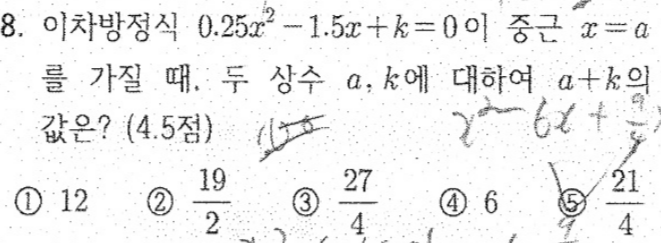 8. 이차방정식 0.25x² - 1.5x + k = 0이 중근 x = a
를 가질 때, 두 상수 a, k에 대하여 a + k의
값은? (4.5점)
x² - 6x + 9/4
① 12 ② 19/2 ③ 27/4 ④ 6 ⑤ 21/4